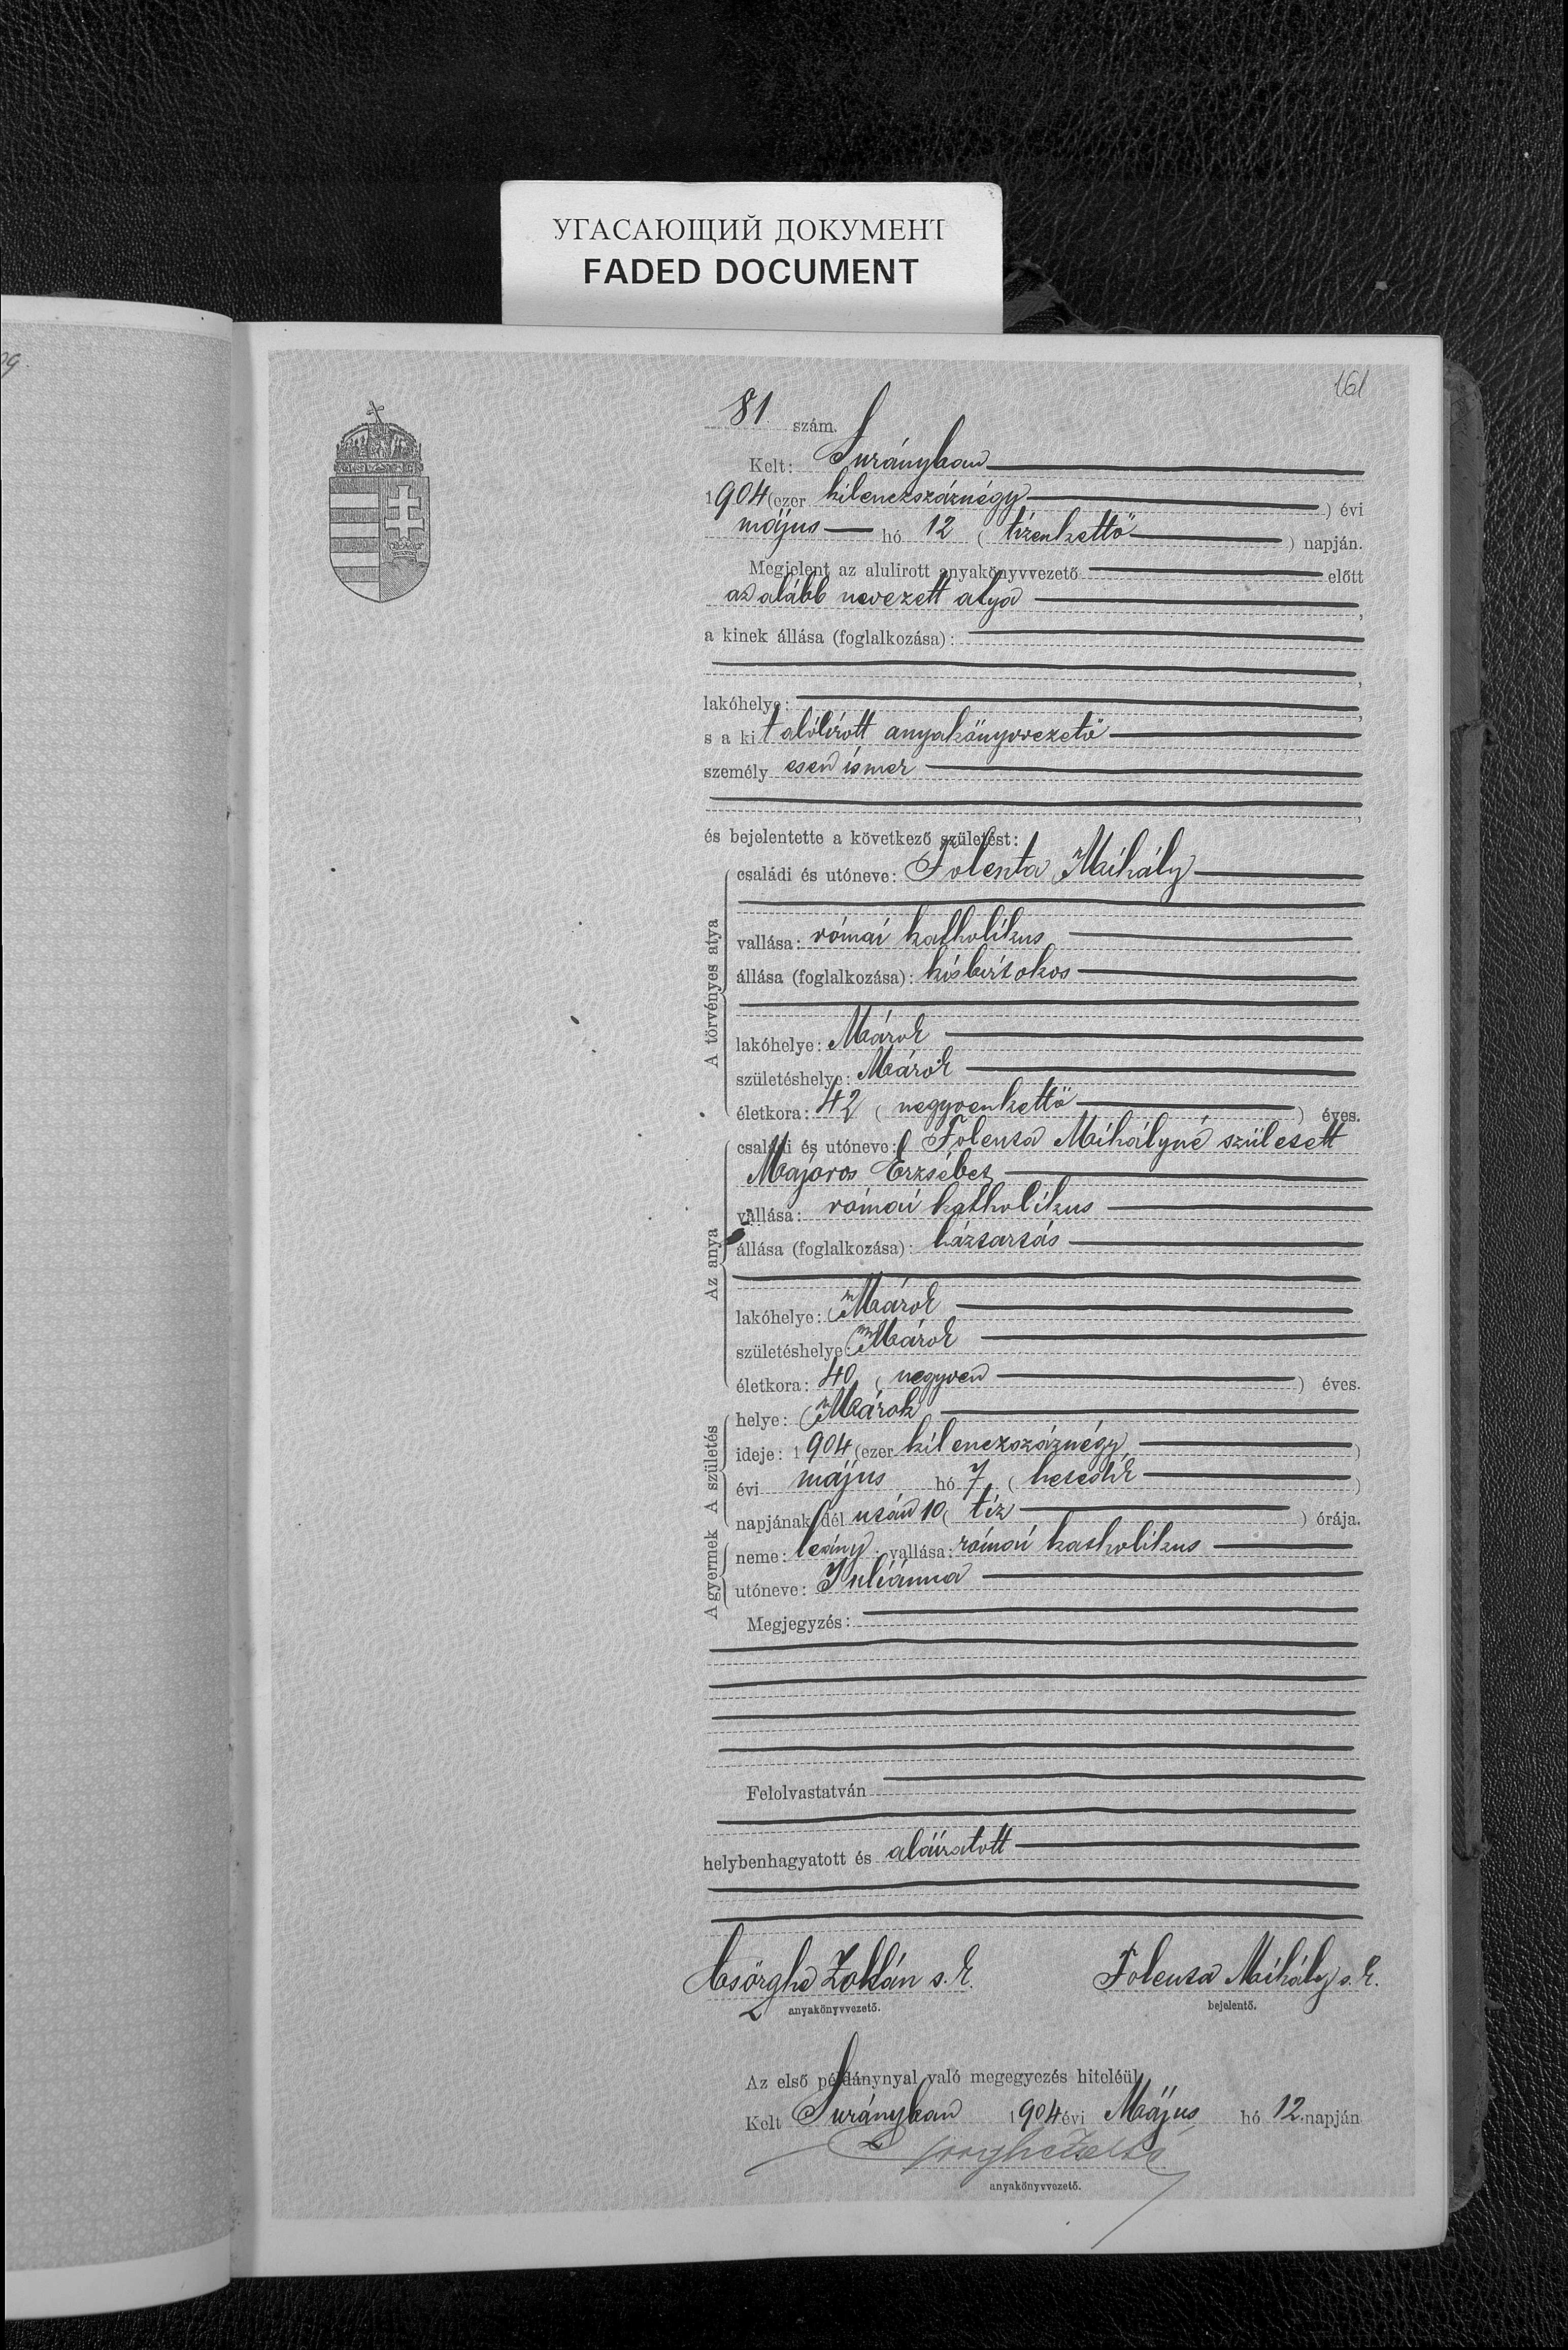 УГАСАЮЩИЙ ДОКУМЕНТ
FADED DOCUMENT
09.
161
81 szám.
Kelt: Surányban
1904 (ezer kilenczszáznégy) évi
május hó 12 (tizenkettő) napján.
Megjelent az alulirott anyakönyvvezető előtt
az alább nevezett atya,
a kinek állása (foglalkozása):
,
lakóhelye: ,
s a kit alólirott anyakönyvvezető
személyesen ismer
,
és bejelentette a következő születést:
A törvényes atya
családi és utóneve: Folenta Mihály
vallása: római katholikus
állása (foglalkozása): kisbirtokos
lakóhelye: Márok
születéshelye: Márok
életkora: 42 (negyvenkettő) éves.
Az anya
családi és utóneve: Folenta Mihályné született
Majoros Erzsébet
vallása: római katholikus
állása (foglalkozása): háztartás
lakóhelye: Márok
születéshelye: Márok
életkora: 40 (negyven) éves.
A születés
helye: Márok
ideje: 1904 (ezer kilenczszáznégy)
évi május hó 7 (hetedik)
napjának dél után 10 (tíz) órája.
A gyermek
neme: leány; vallása: római katholikus
utóneve: Juliánna
Megjegyzés:
Felolvastatván
helybenhagyatott és aláiratott
Csörghe Zoltán s. k. Folenta Mihály s. k.
anyakönyvvezető. bejelentő.
Az első példánynyal való megegyezés hiteléül
Kelt Surányban 1904 évi Május hó 12 napján
anyakönyvvezető.